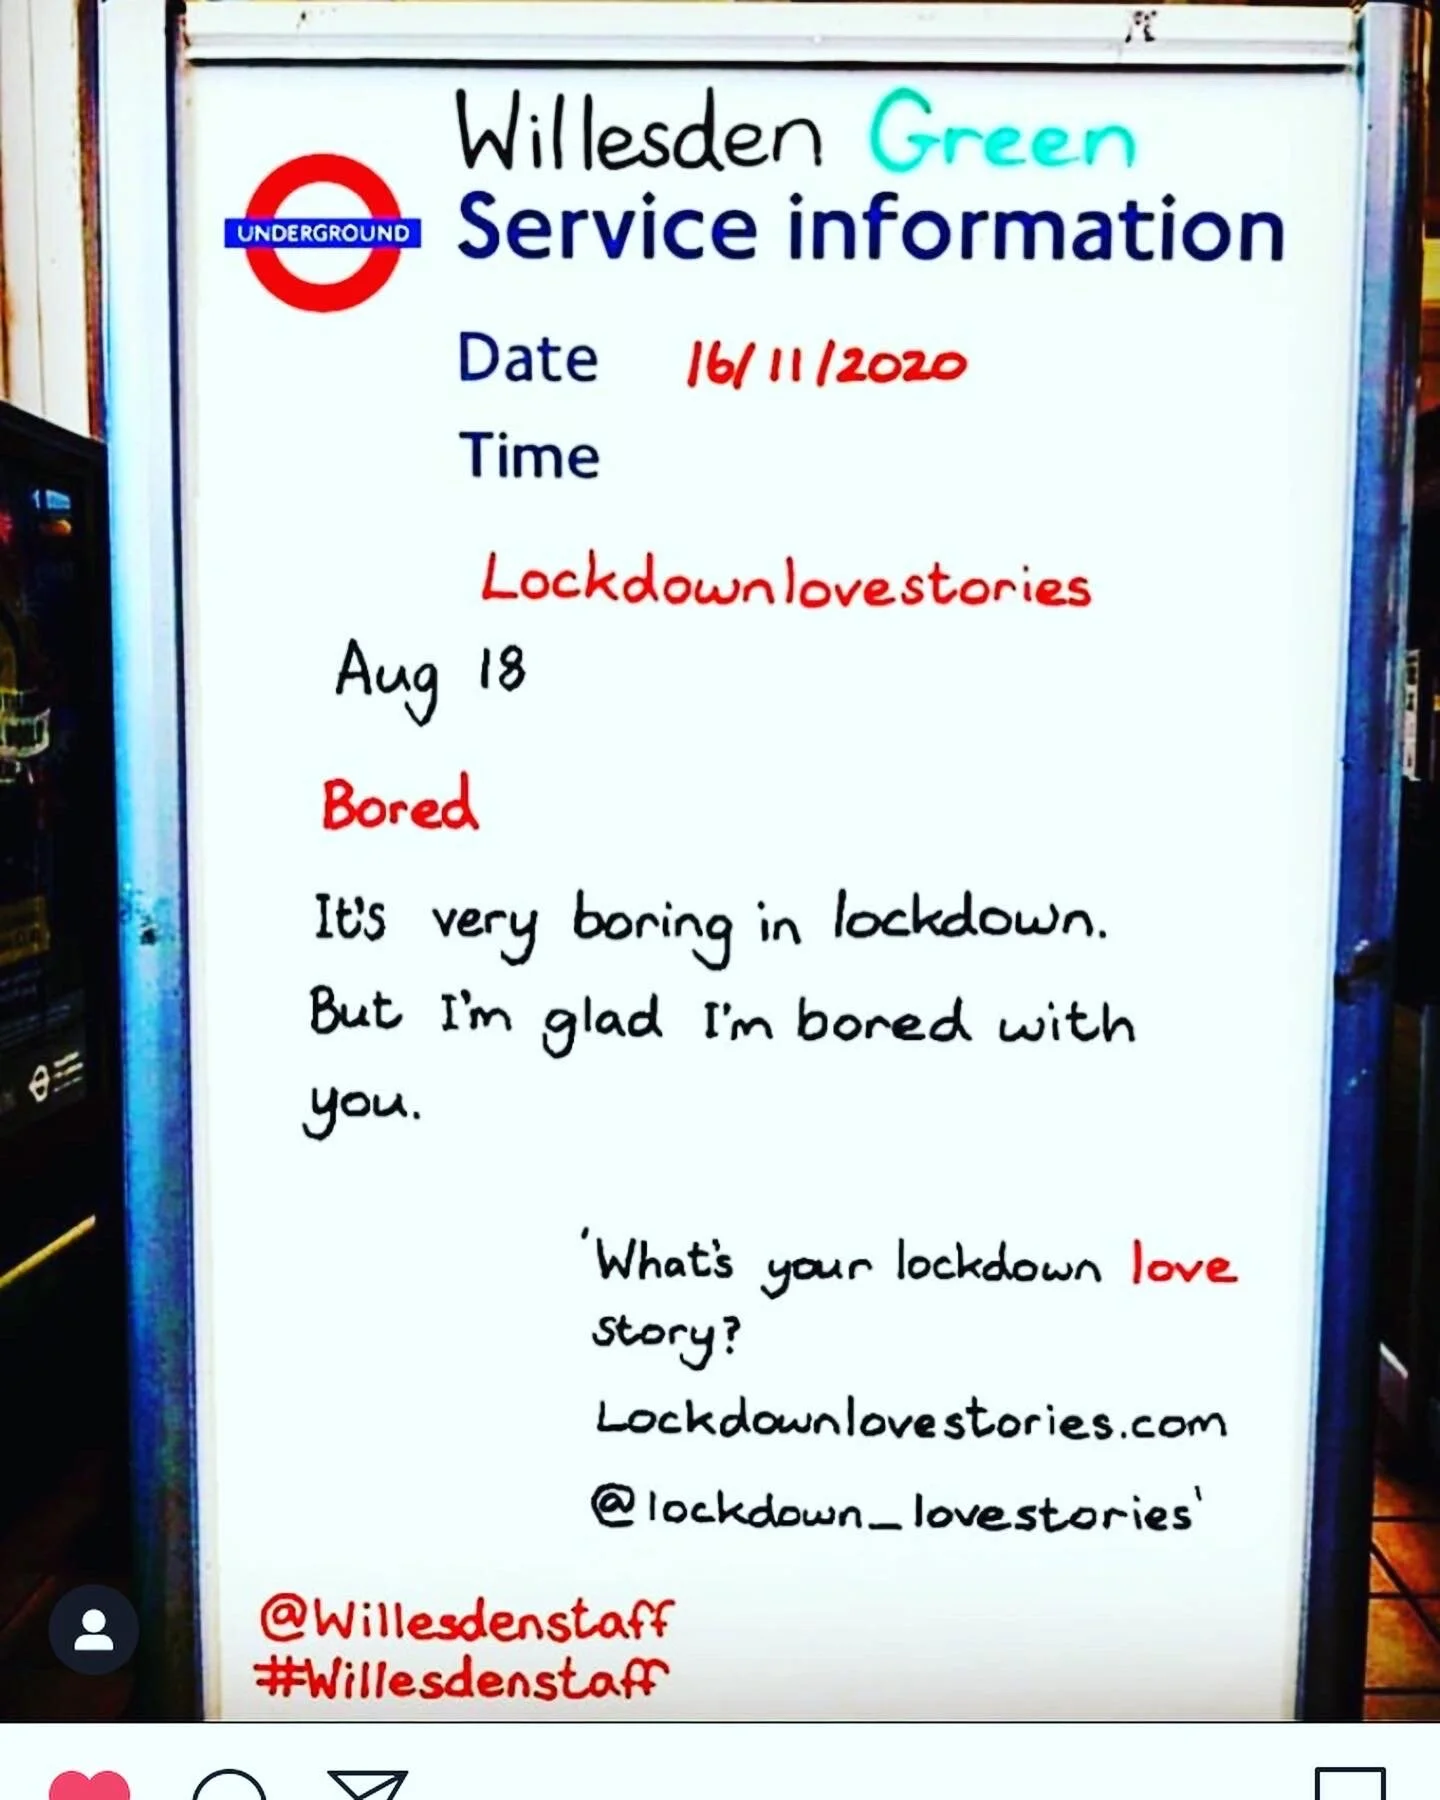 Willesden Green
UNDERGROUND
Service information
Date 16/11/2020
Time
Lockdownlovestories
Aug 18
Bored
It's very boring in lockdown.
But I'm glad I'm bored with
you.
'What's your lockdown love
story?
Lockdownlovestories.com
@lockdown_lovestories'
@Willesdenstaff
#Willesdenstaff